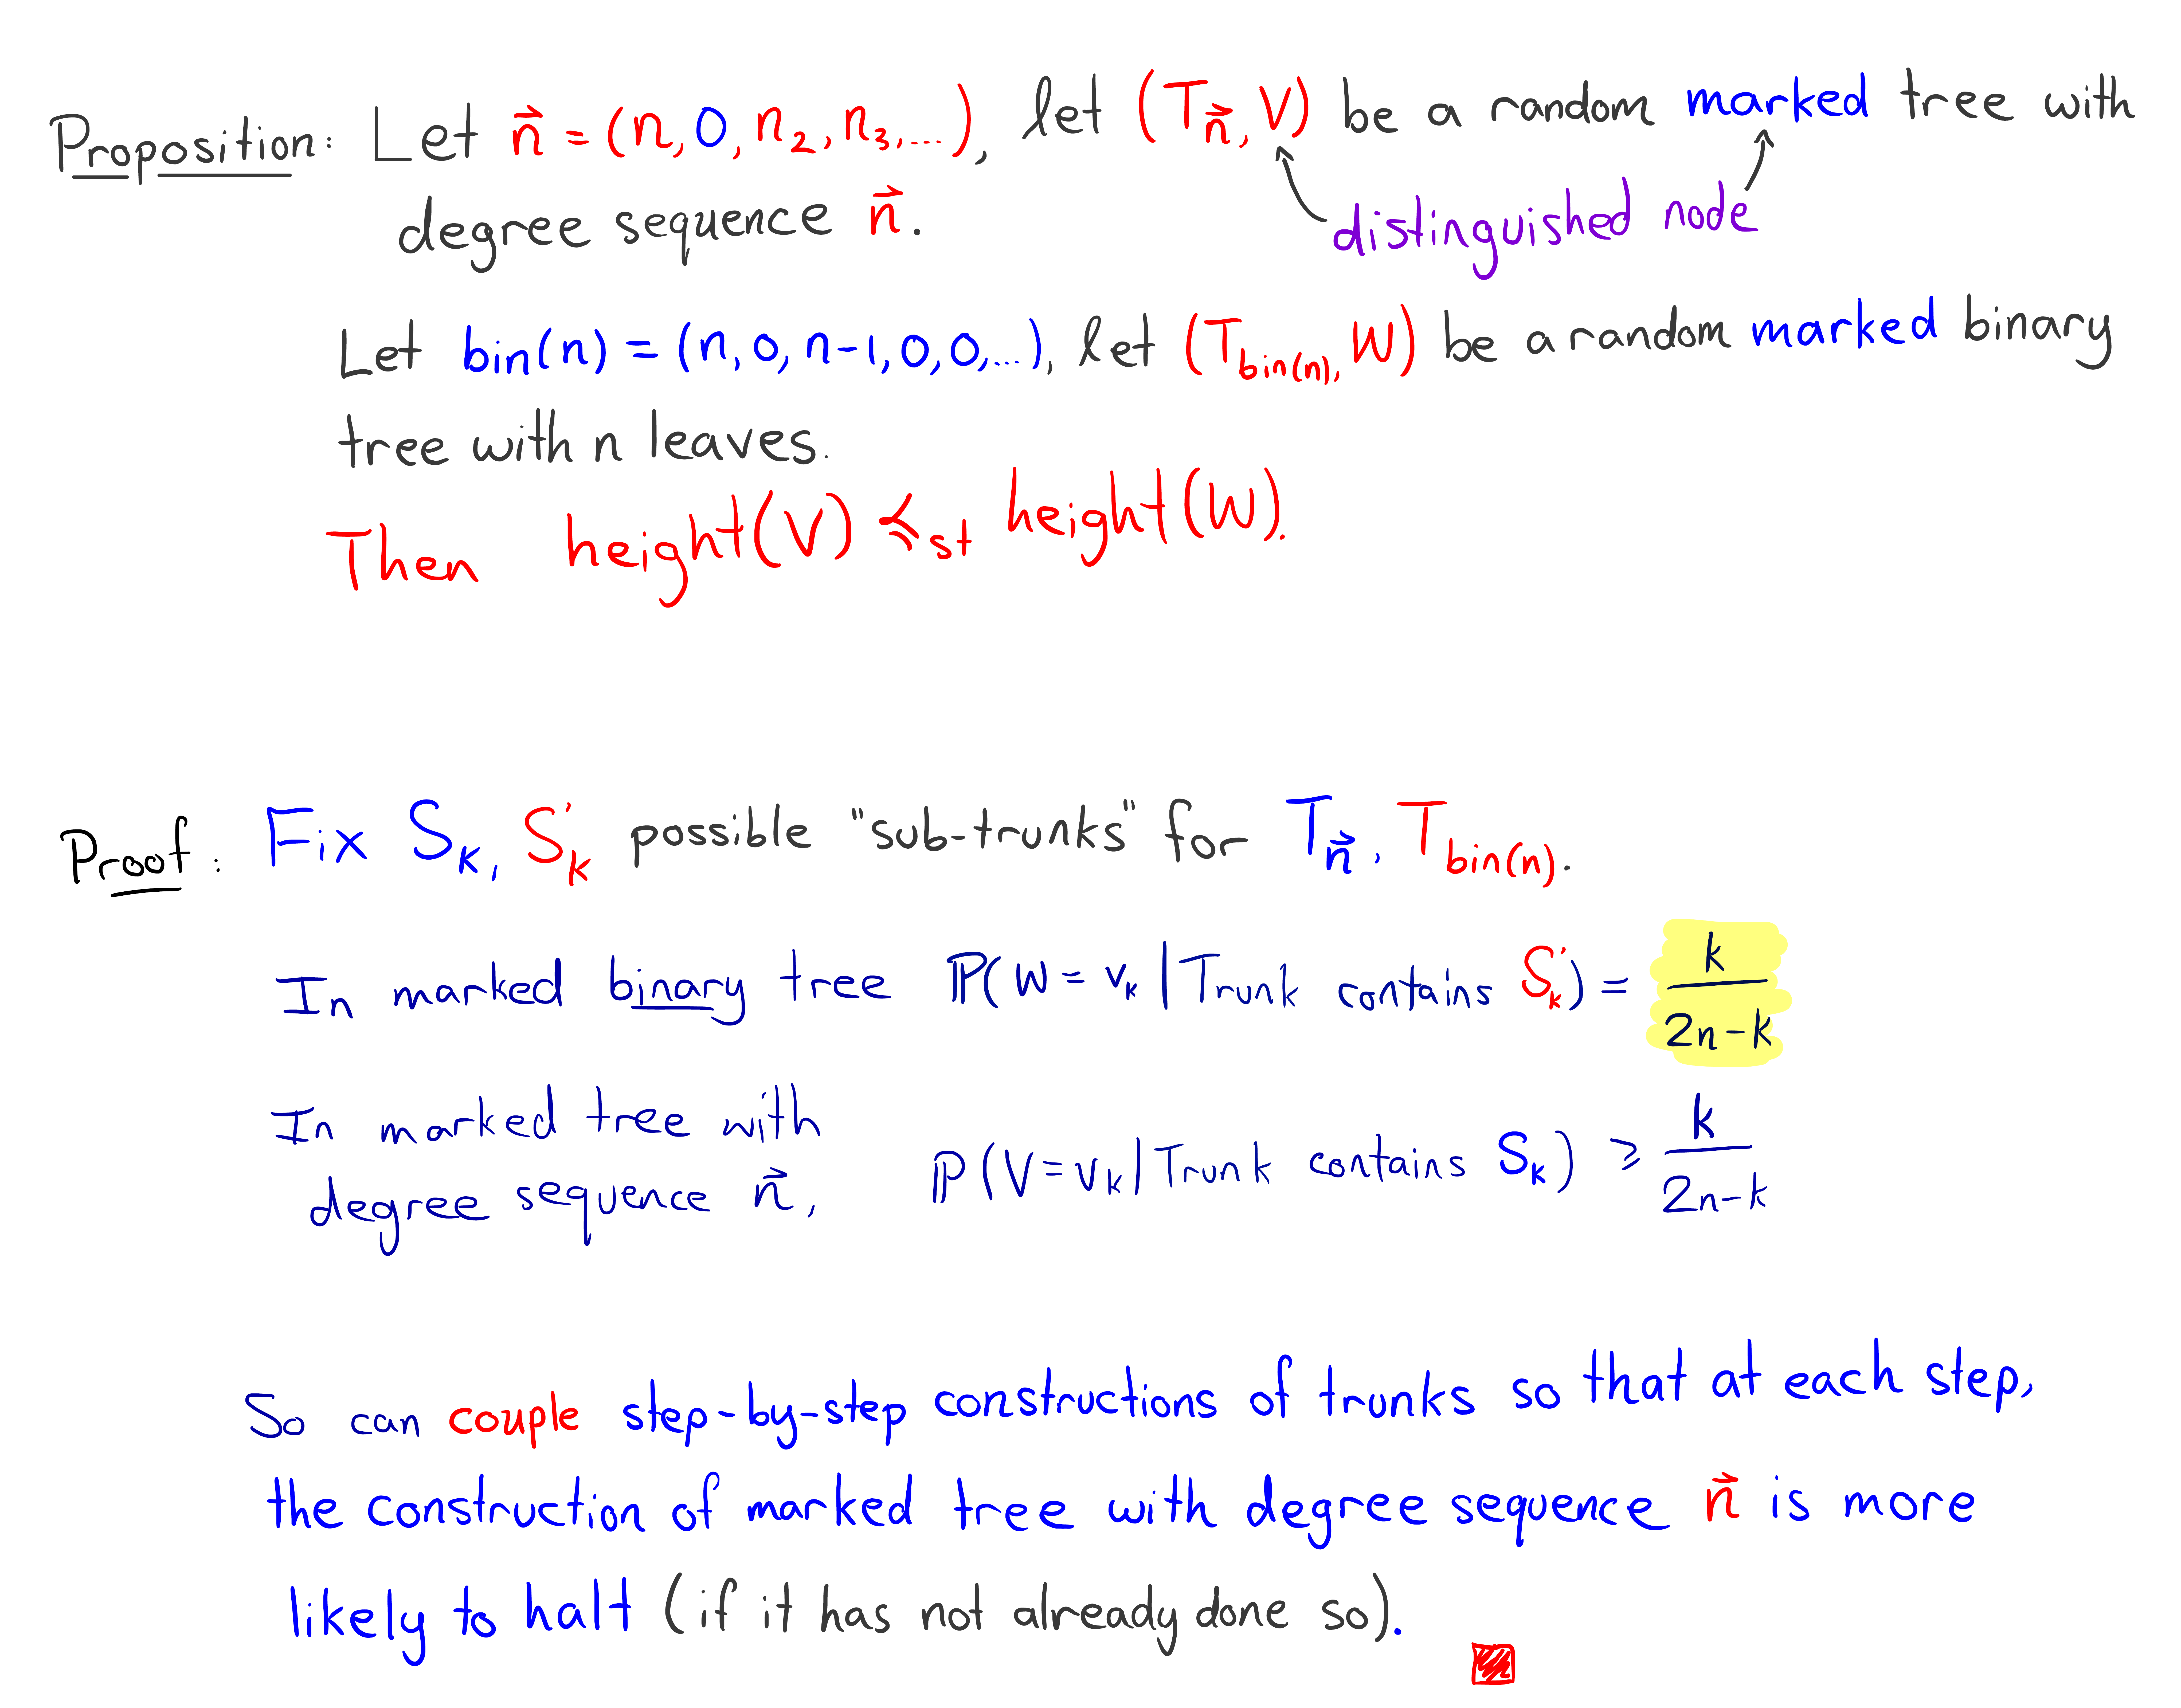 Proposition: Let n⃗ = (n, 0, n₂, n₃, ...), let (T_n⃗, V) be a random marked tree with
degree sequence n⃗.
distinguished node
Let bin(n) = (n, 0, n-1, 0, 0, ...), let (T_bin(n), W) be a random marked binary
tree with n leaves.
Then height(V) ≼_st height(W).
Proof: Fix S_k, S'_k possible "sub-trunks" for T_n⃗, T_bin(n).
In marked binary tree P(W = v_k | Trunk contains S'_k) = k/(2n-k)
In marked tree with
degree sequence n⃗, ℙ(V = v_k | Trunk contains S_k) ≥ k/(2n-k)
So can couple step-by-step constructions of trunks so that at each step,
the construction of marked tree with degree sequence n⃗ is more
likely to halt (if it has not already done so).